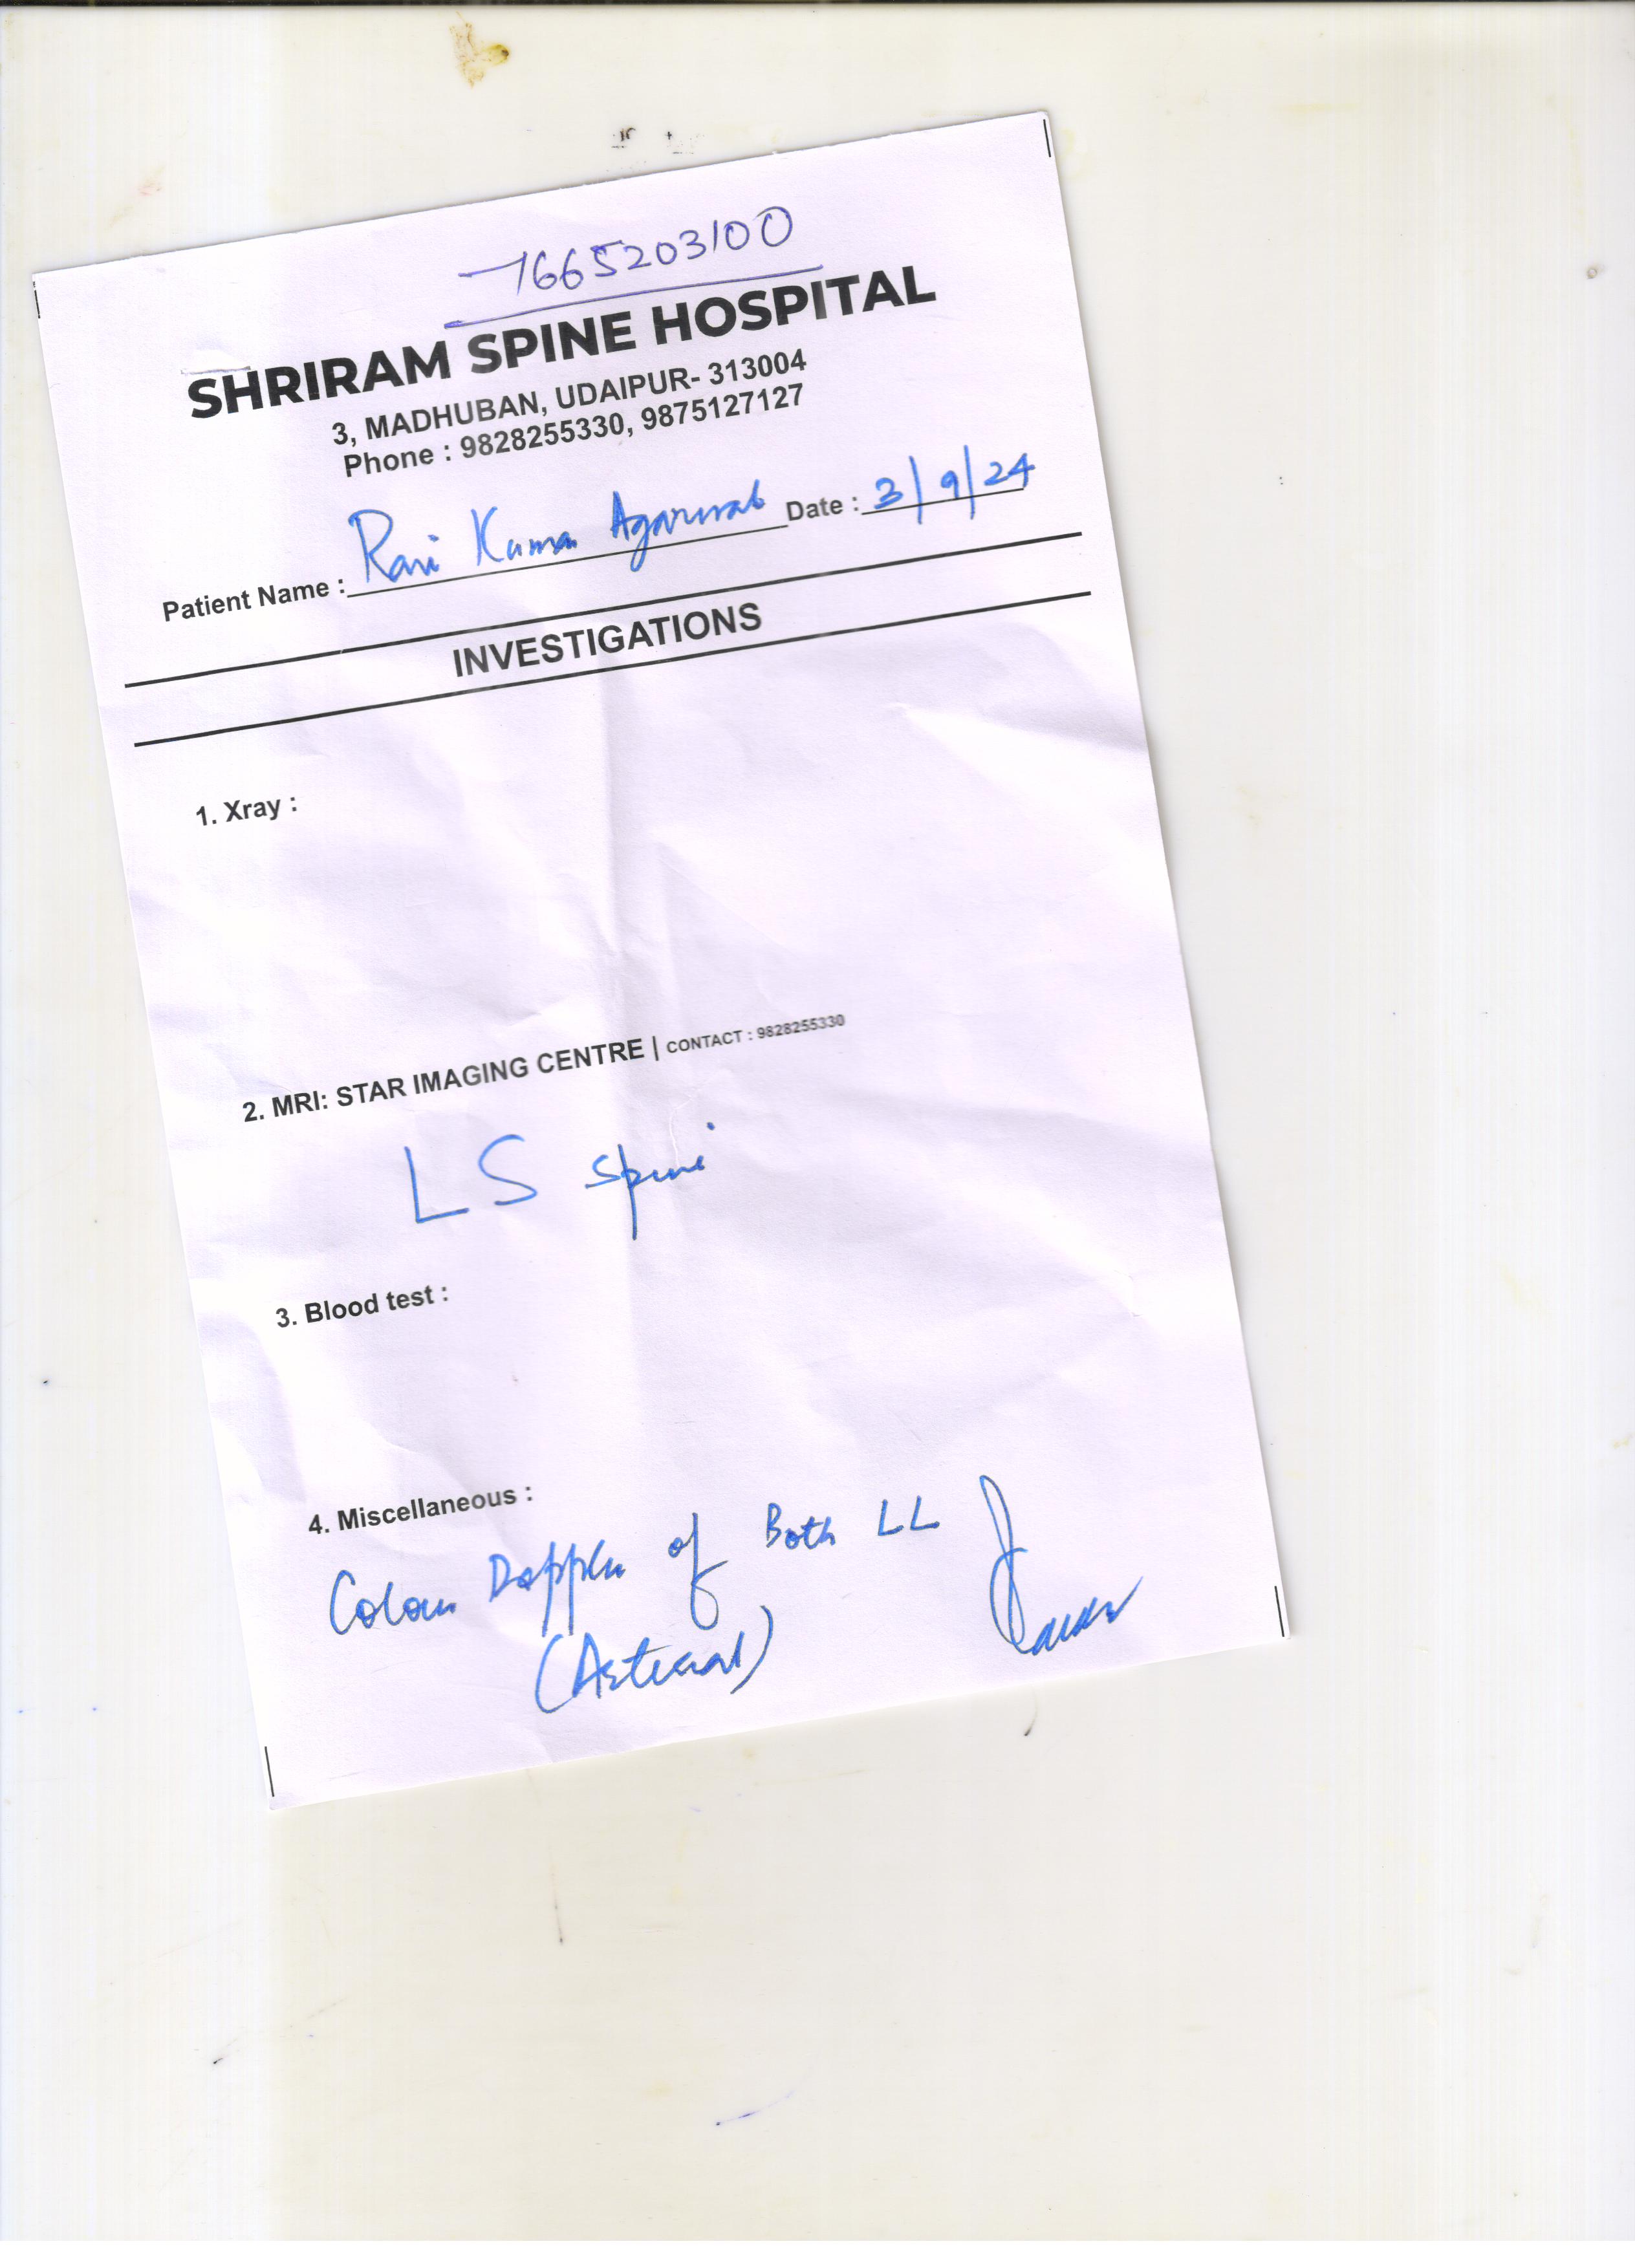 7665203100
SHRIRAM SPINE HOSPITAL
3, MADHUBAN, UDAIPUR- 313004
Phone : 9828255330, 9875127127
Patient Name : Ravi Kumar Agarwal Date : 3/9/24
INVESTIGATIONS
1. Xray :
2. MRI: STAR IMAGING CENTRE | CONTACT : 9828255330
LS Spine
3. Blood test :
4. Miscellaneous :
Colour Doppler of Both LL
(Arterial)